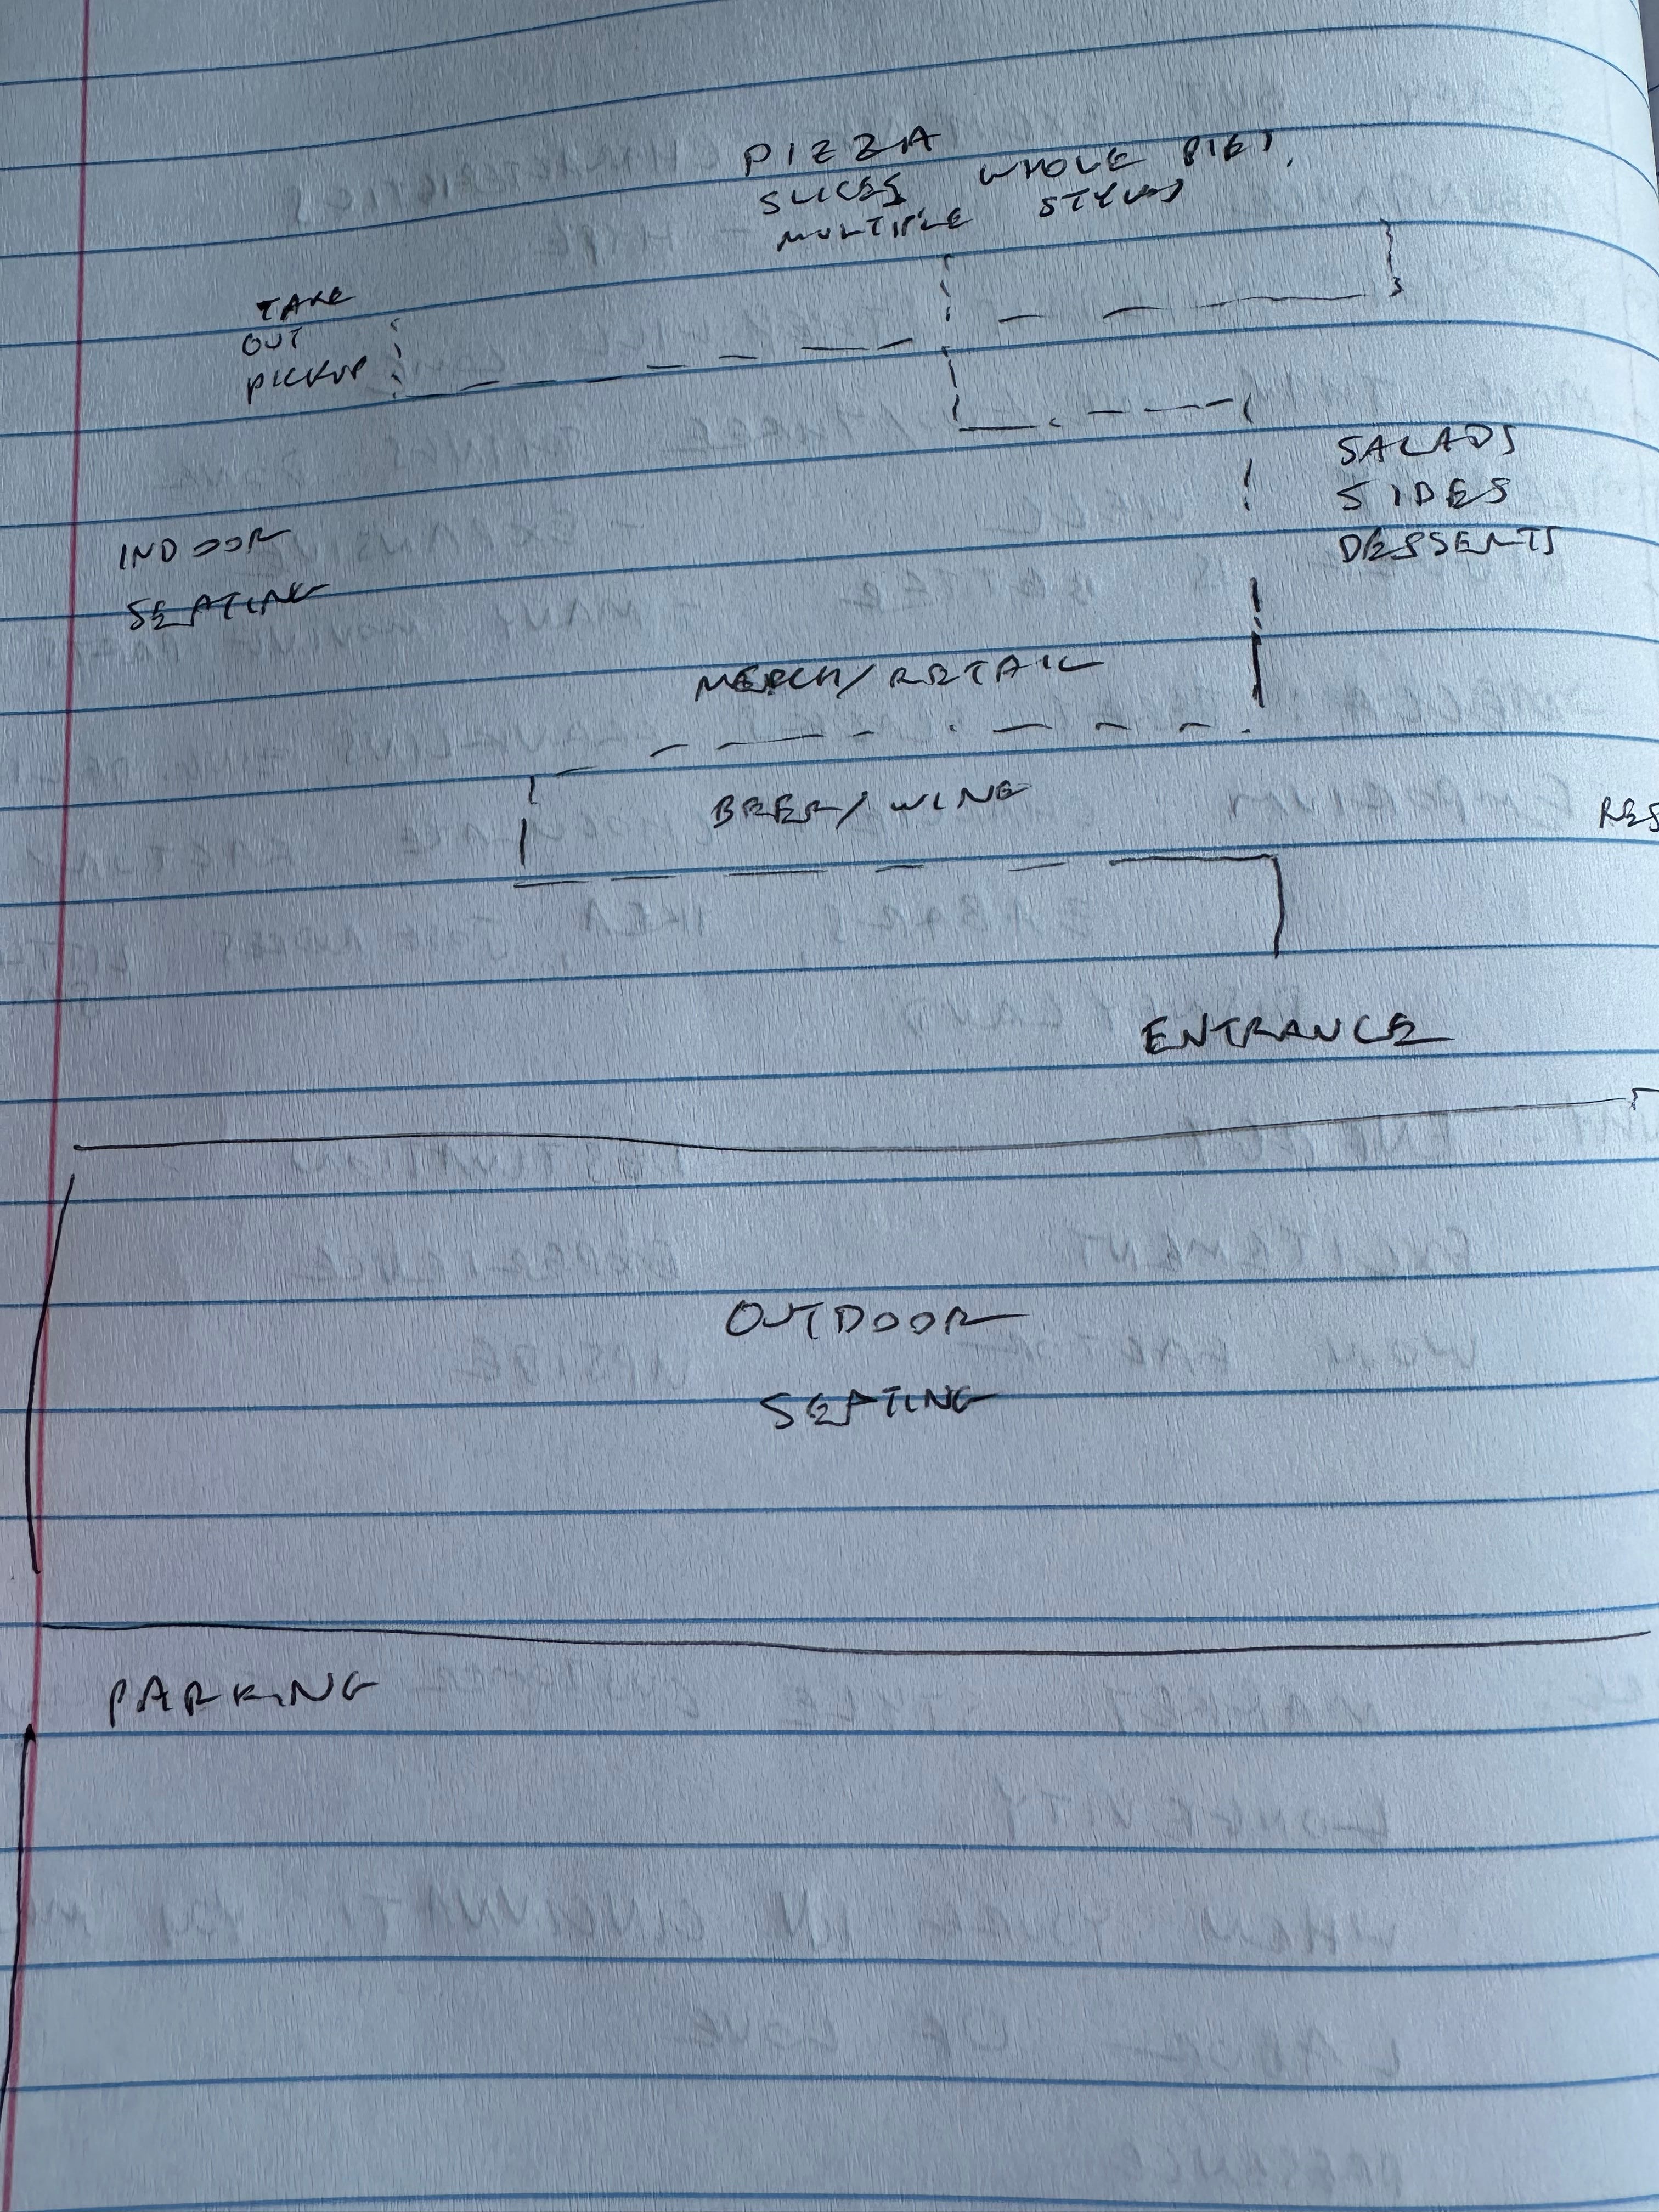 PIZZA
SLICES WHOLE PIES,
MULTIPLE STYLES
TAKE
OUT
PICKUP
SALADS
SIDES
DESSERTS
INDOOR
SEATING
MERCH/RETAIL
BEER/WINE
RES
ENTRANCE
OUTDOOR
SEATING
PARKING